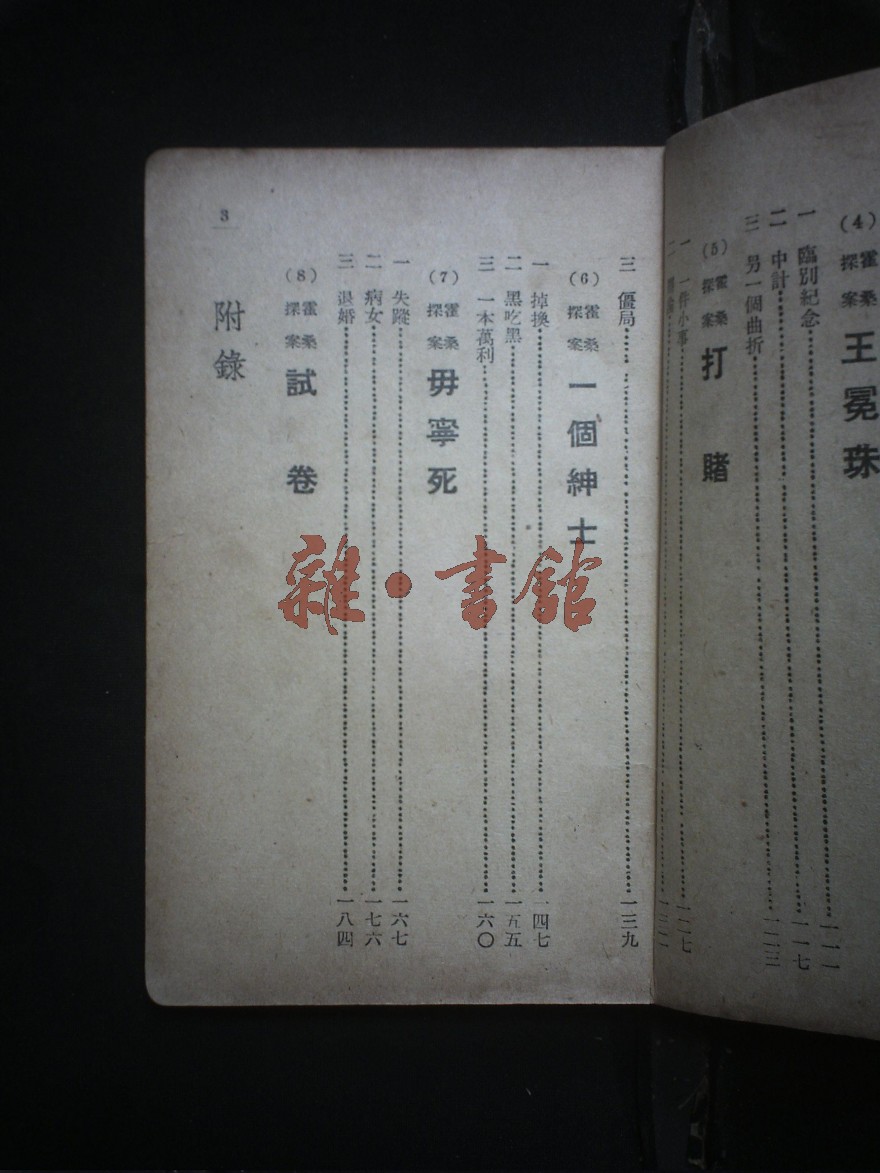 (4) 霍桑探案 王冕珠
一 臨別紀念……一一一
二 中計……一一七
三 另一個曲折……一二三
(5) 霍桑探案 打賭
一 一件小事……一二七
二
三 僵局……一三九
(6) 霍桑探案 一個紳士
一 掉換……一四七
二 黑吃黑……一五五
三 一本萬利……一六〇
(7) 霍桑探案 毋寧死
一 失蹤……一六七
二 病女……一七六
三 退婚……一八四
(8) 霍桑探案 試卷
附錄
3
雜·書館